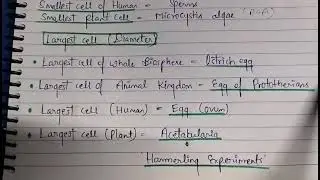 Smallest cell of Human = Sperms
Smallest plant cell = Microcystis algae (BGA)
Largest cell (Diameter)
• Largest cell of whole Biosphere = Ostrich egg
• Largest cell of Animal Kingdom - Egg of Prototherians
• Largest cell (Human) = Egg (ovum)
• Largest cell (Plant) = Acetabularia
'Hammerling Experiments'